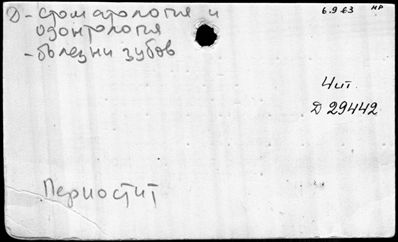 Д - стоматология и
одонтология
- болезни зубов
6.9 63 нр
4 ит.
Д 29442
Периостит